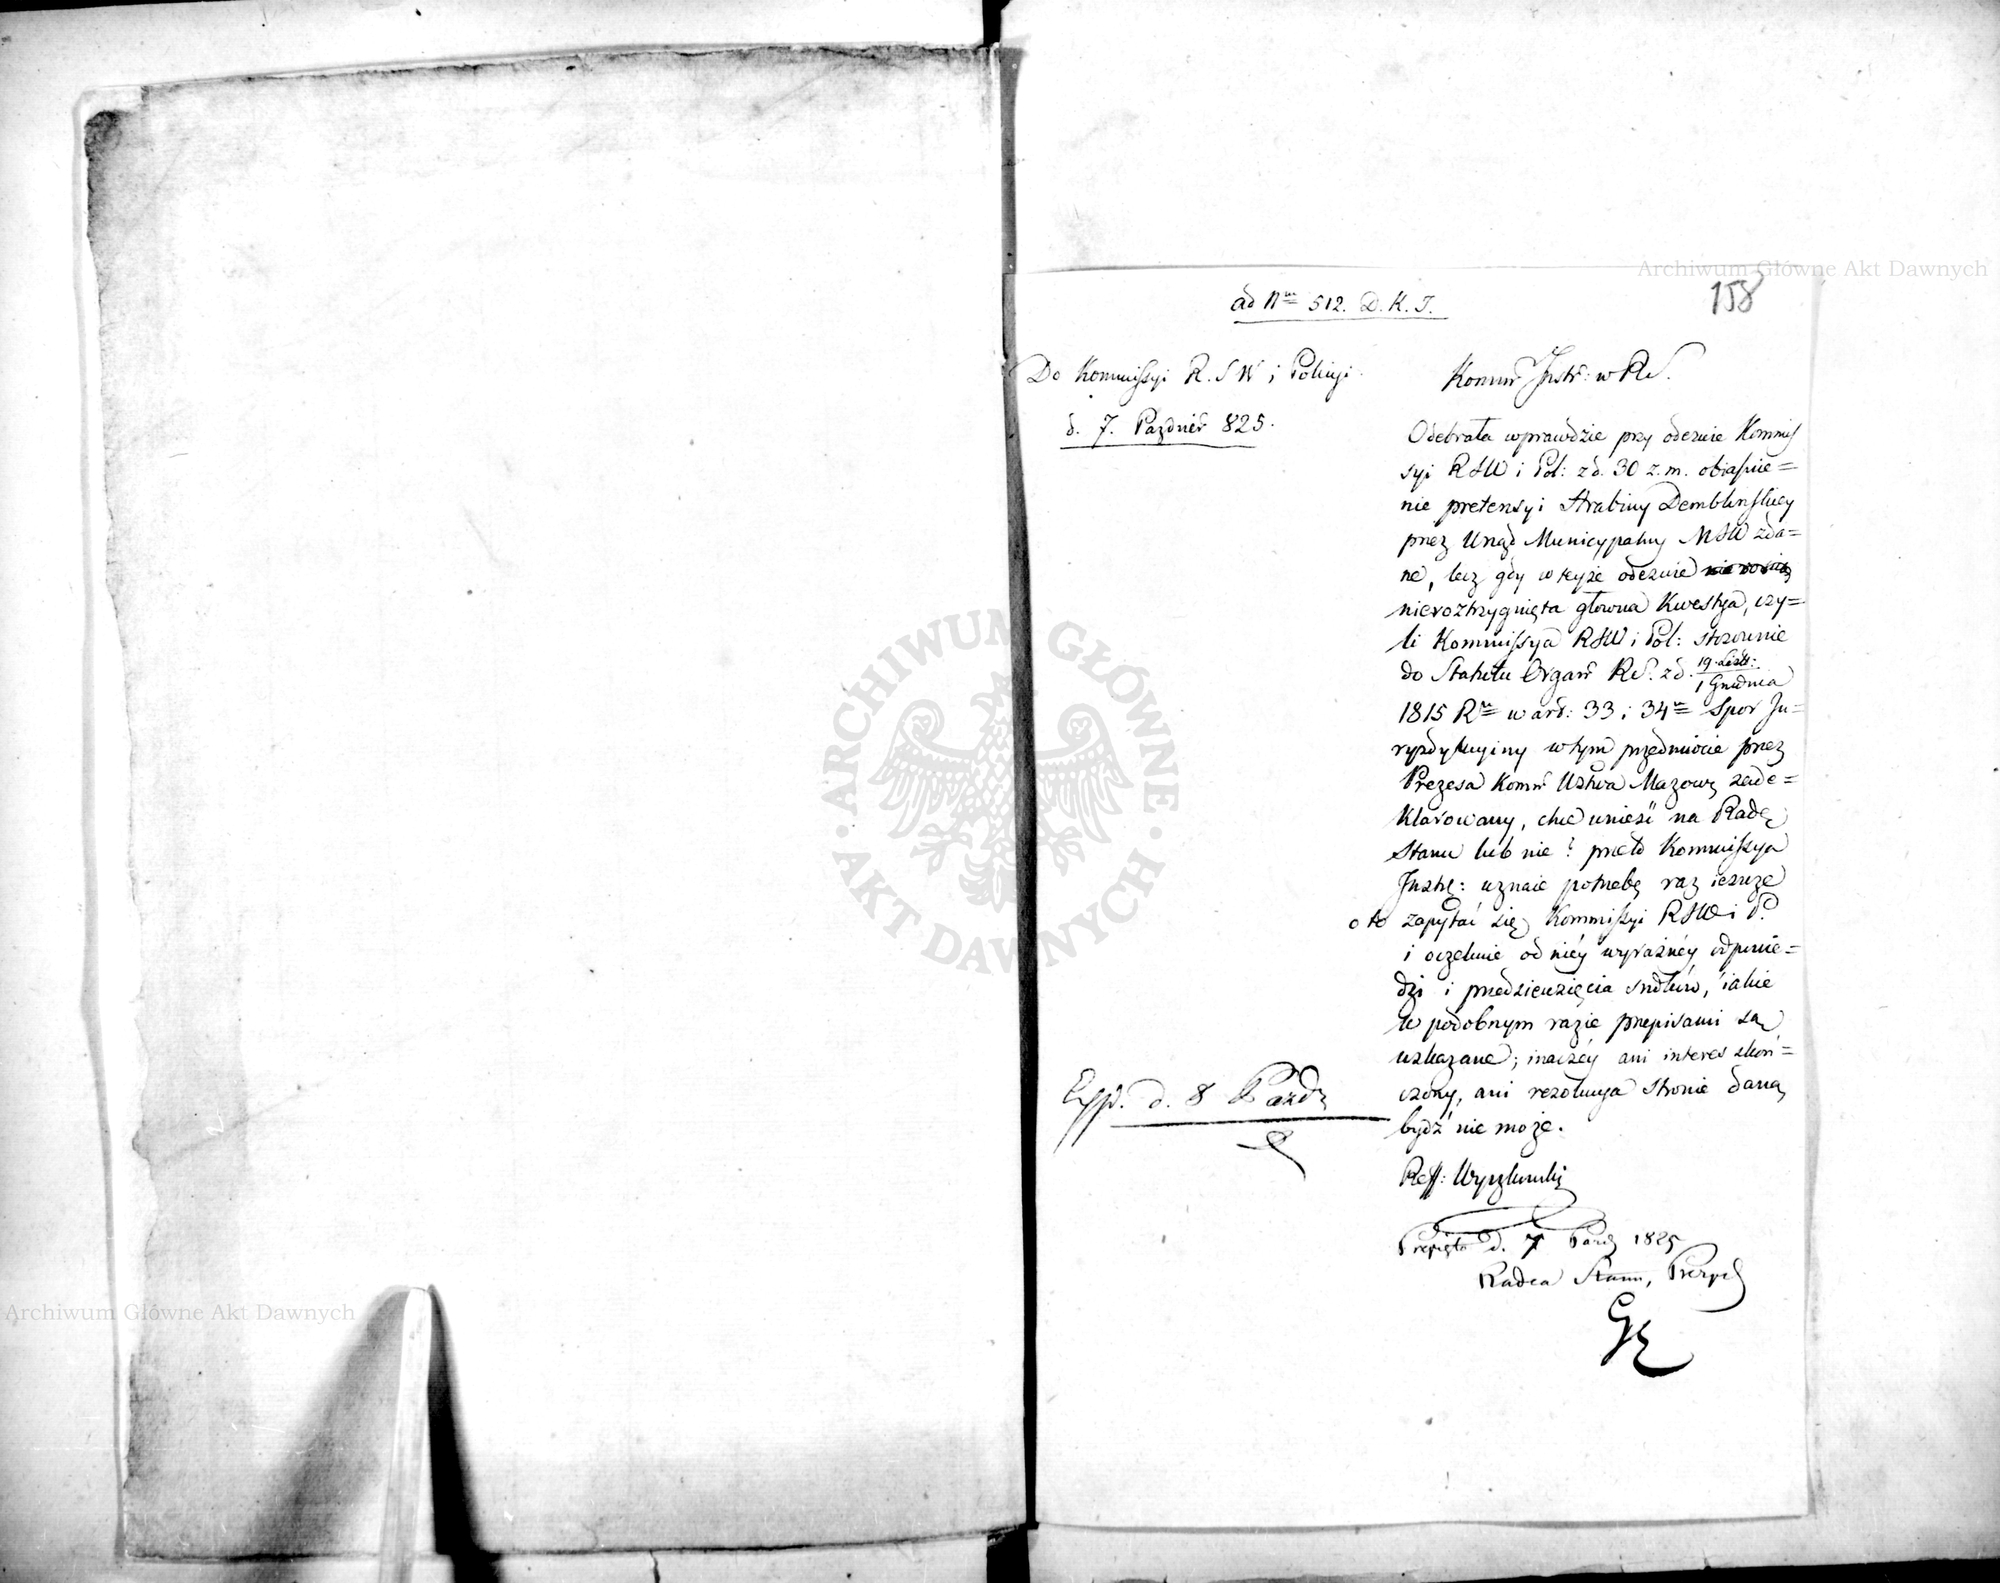 ad Nrm 512. D. K. J.
158
Do Kommissyi R. S W i Policyi
d. 7. Paździer 825.
Komm Instr: w Rd.
Odebrała wprawdzie przy odezwie Kommis
syi RSW i Pol: z d. 30 z. m. obiaśnie=
nie pretensyi Hrabiny Demblinskiey
przez Urząd Municypalny MSW zda=
ne, lecz gdy w teyże odezwie
nieroztrzygnięta głowna Kwestya, czy=
li Kommissya RSW i Pol: stosownie
do Statutu Organ Rd. z d. 19. Listo:
1 Grudnia
1815 R w art: 33 i 34 Spor Ju=
ryzdykcyiny w tym przedmiocie przez
Prezesa Komm Wztwa Mazow zade=
klarowany, chce wnieść na Radę
Stanu lub nie? przeto Kommissya
Instr: uznaie potrzebę raz ieszcze
o to zapytać się Kommissyi RSW i P.
i oczekuie od niéy wyraźnéy odpowie=
dzi i przedsięwzięcia srodków, iakie
w podobnym razie przepisami są
wskazane; inaczéy ani interes skoń=
czony, ani rezolucya stronie daną
bydź nie może.
Reff: Wyszkowski
Exp. d. 8 Pazdz
Przyięto d. 7 Pazd 1825
Radca Stanu, Prezyd
Archiwum Główne Akt Dawnych
Archiwum Główne Akt Dawnych
ARCHIWUM GŁÓWNE · AKT DAWNYCH ·